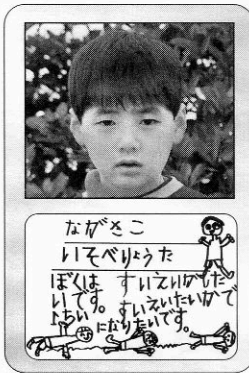 ながさこ
いそべりょうた
ぼくは すいえいがした
いです。すいえいたいかで
になりたいです。